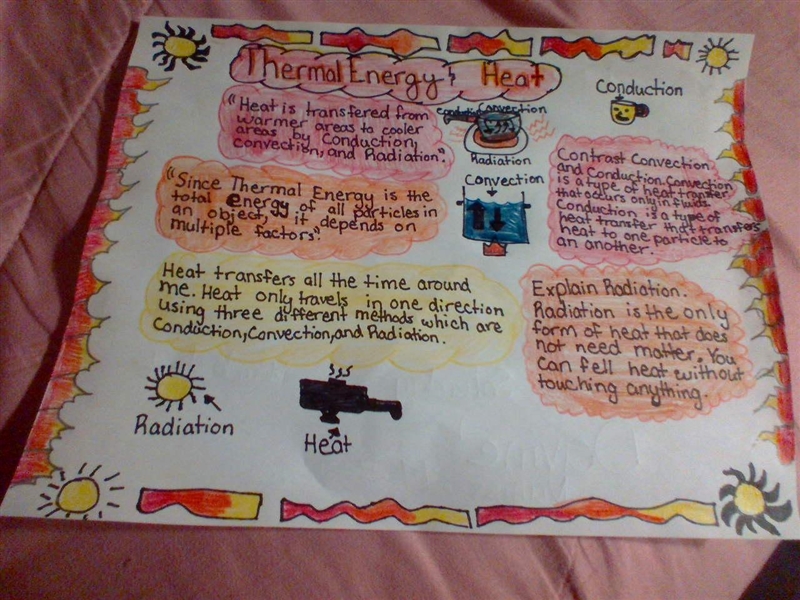 Thermal Energy & Heat
"Heat is transfered from
warmer areas to cooler
areas by Conduction,
convection, and Radiation".
Convection
Radiation
Conduction
"Since Thermal Energy is the
total energy of all particles in
an object, it depends on
multiple factors".
Convection
Contrast Convection
and Conduction. Convection
is a type of heat transfer
that occurs only in fluids.
Conduction is a type of
heat transfer that transfers
heat to one particle to
an another.
Heat transfers all the time around
me. Heat only travels in one direction
using three different methods which are
Conduction, Convection, and Radiation.
Explain Radiation.
Radiation is the only
form of heat that does
not need matter. You
can fell heat without
touching anything.
Radiation
Heat